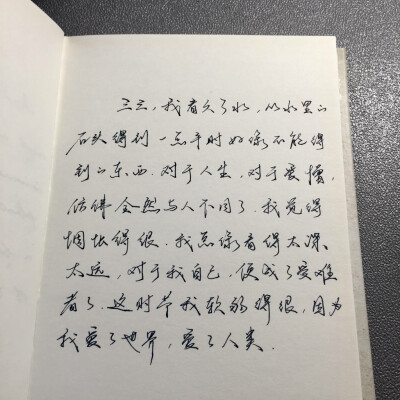 三三，我看久了水，从水里山
石头得到一点平时好像不能得
到山东西，对于人生，对于爱憎，
仿佛全然与人不同了。我觉得
惆怅得很，我总像看得太深
太远，对于我自己，便成了受难
者了。这时节我软弱得很，因为
我爱了世界，爱了人类。